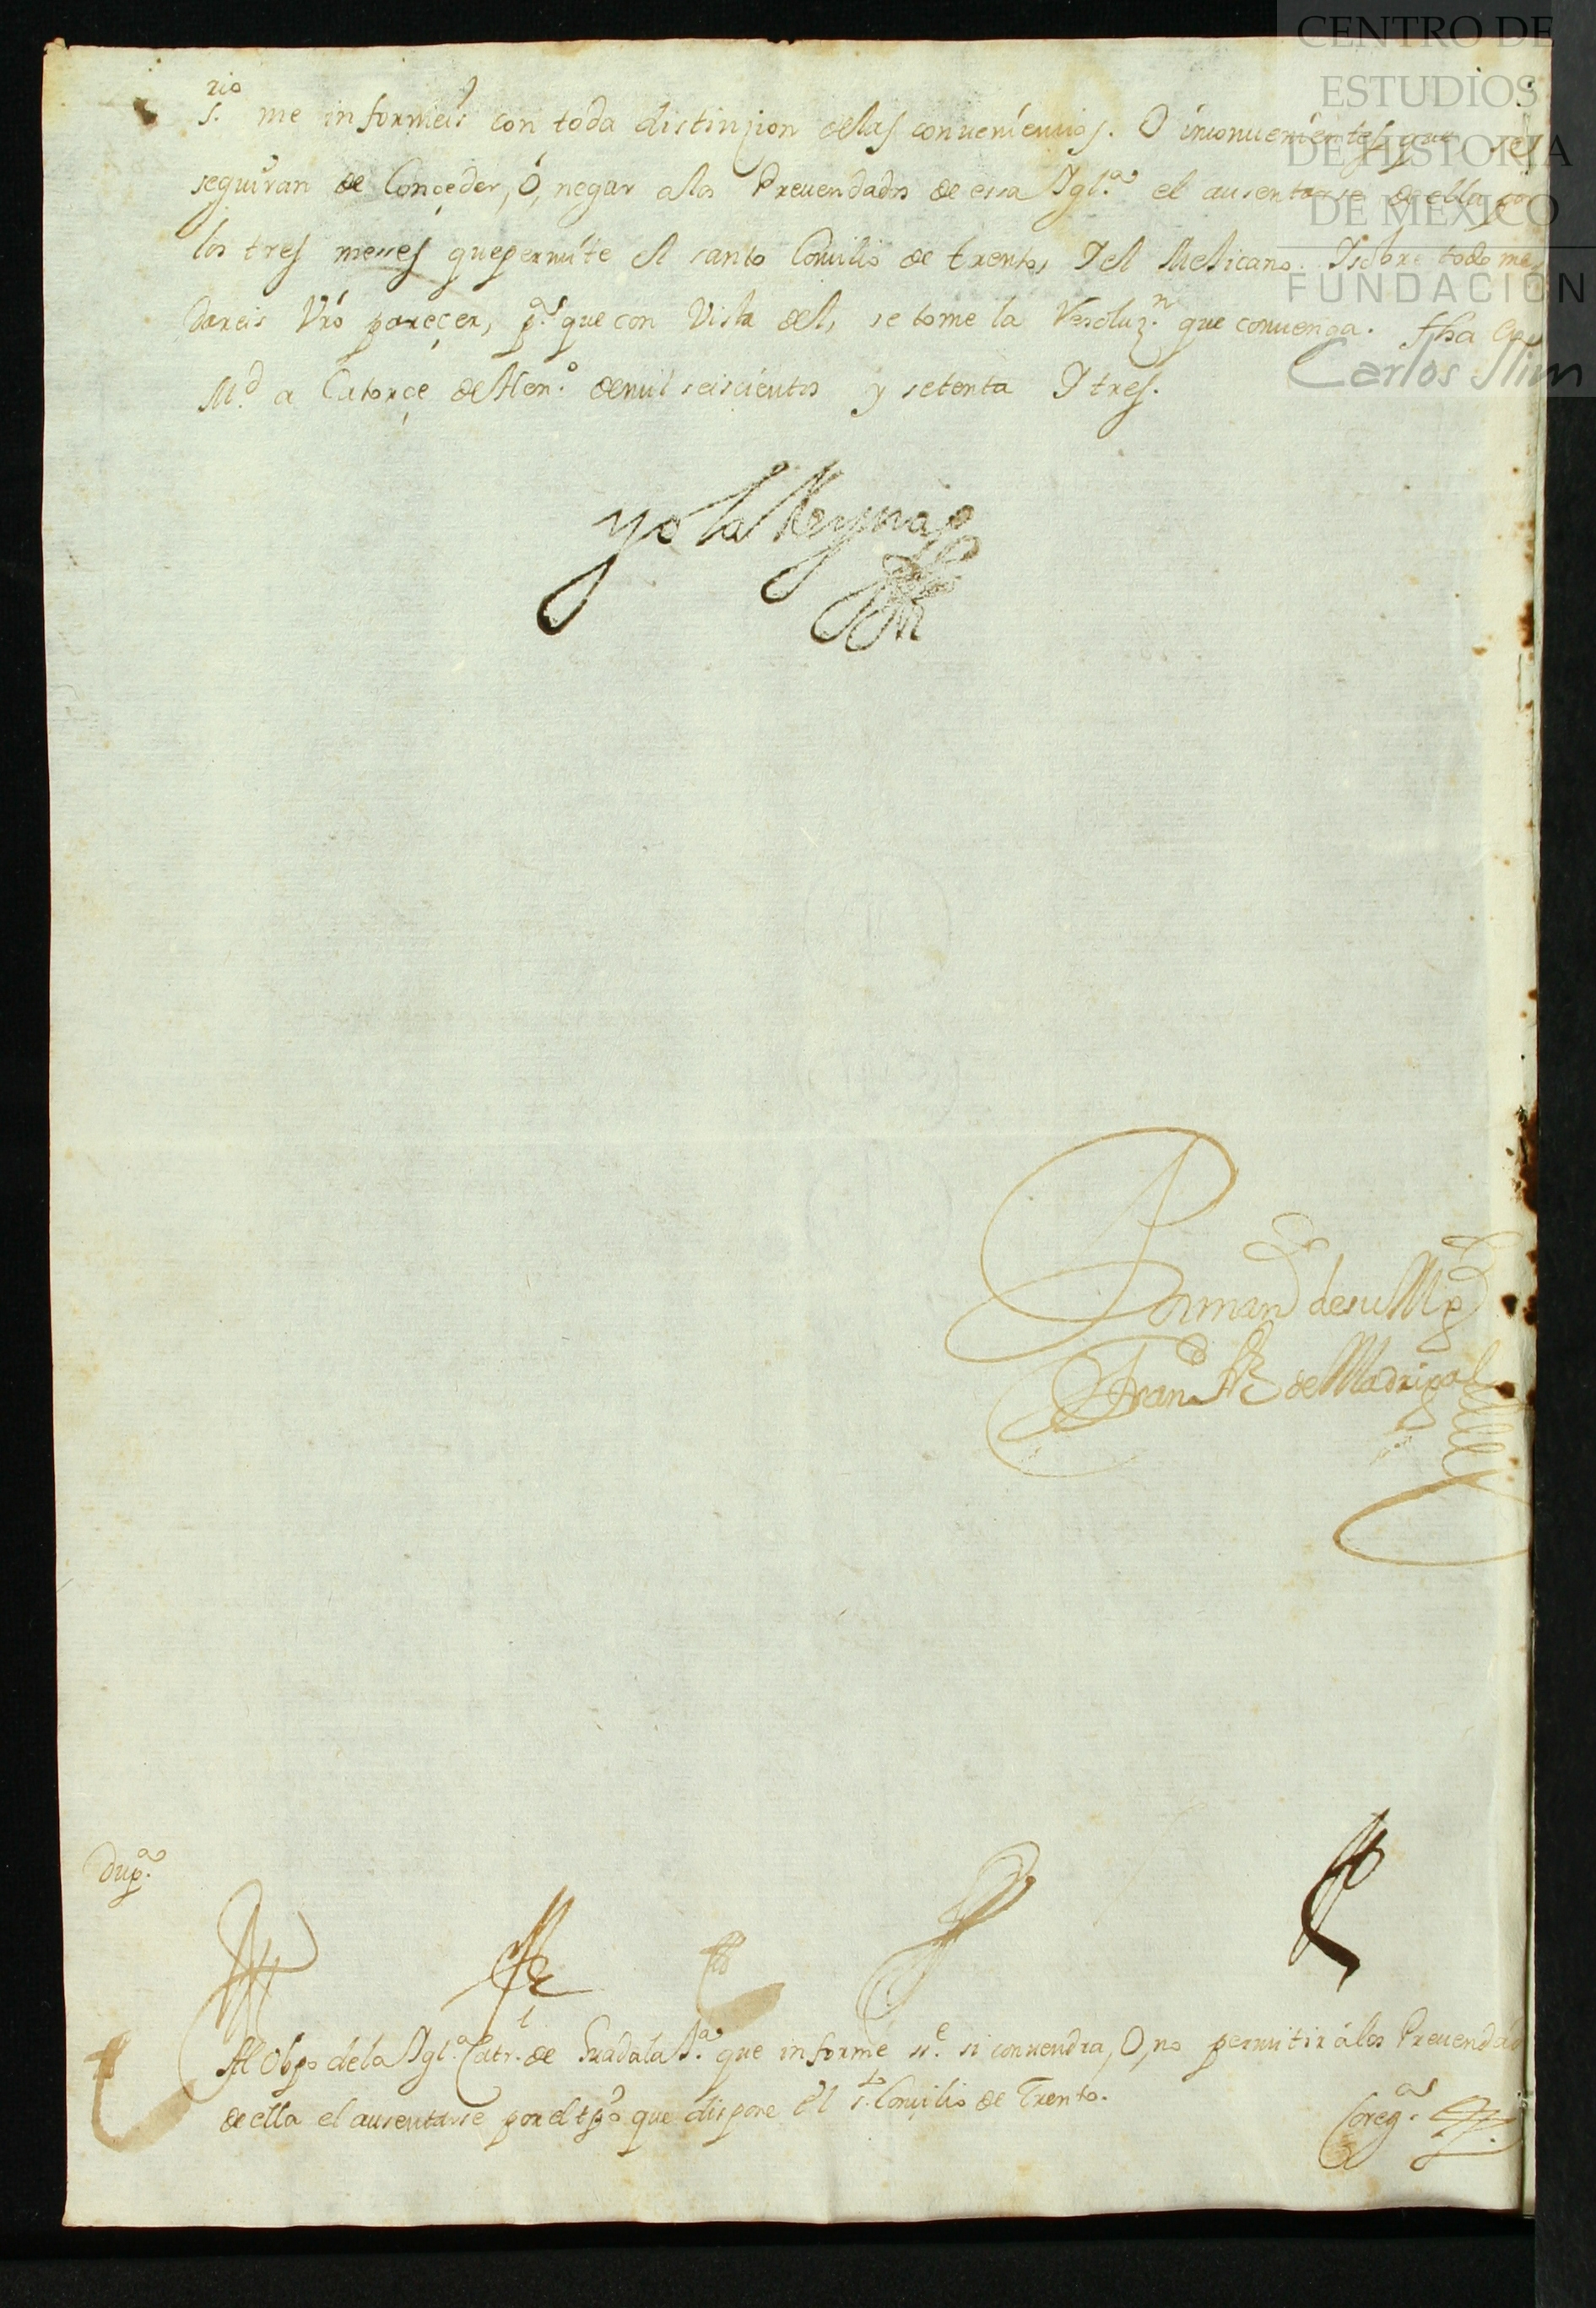 CENTRO DE
ESTUDIOS
DE HISTORIA
DE MÉXICO
FUNDACIÓN
Carlos Slim
s.rio me informeis con toda distinçion delas conueniençias. O inconuenientes que se
seguiran de Conçeder, ó, negar alos Preuendados de essa Igl.a el ausentarse de ella por
los tres meses que permite el santo Conçilio de trento, I el Mexicano. I sobre todo me
dareis Vro pareçer, p.a que con Vista del, se tome la Resoluz.n que conuenga. fha en
M.d a Catorçe de Hen.o de mil seiscientos y setenta I tres.
yo la Reyna
Por mand.o de su Mg.d
Fran.co Frz de Madrigal
Dup.a
Al Obpo de la Igl.a Catr.l de Guadalax.a que informe ss.e si conuendra, O, no permitir á los Preuendad
de ella el ausentarse por el tpo que dispone el s.to Conçilio de Trento.
Coreg.a